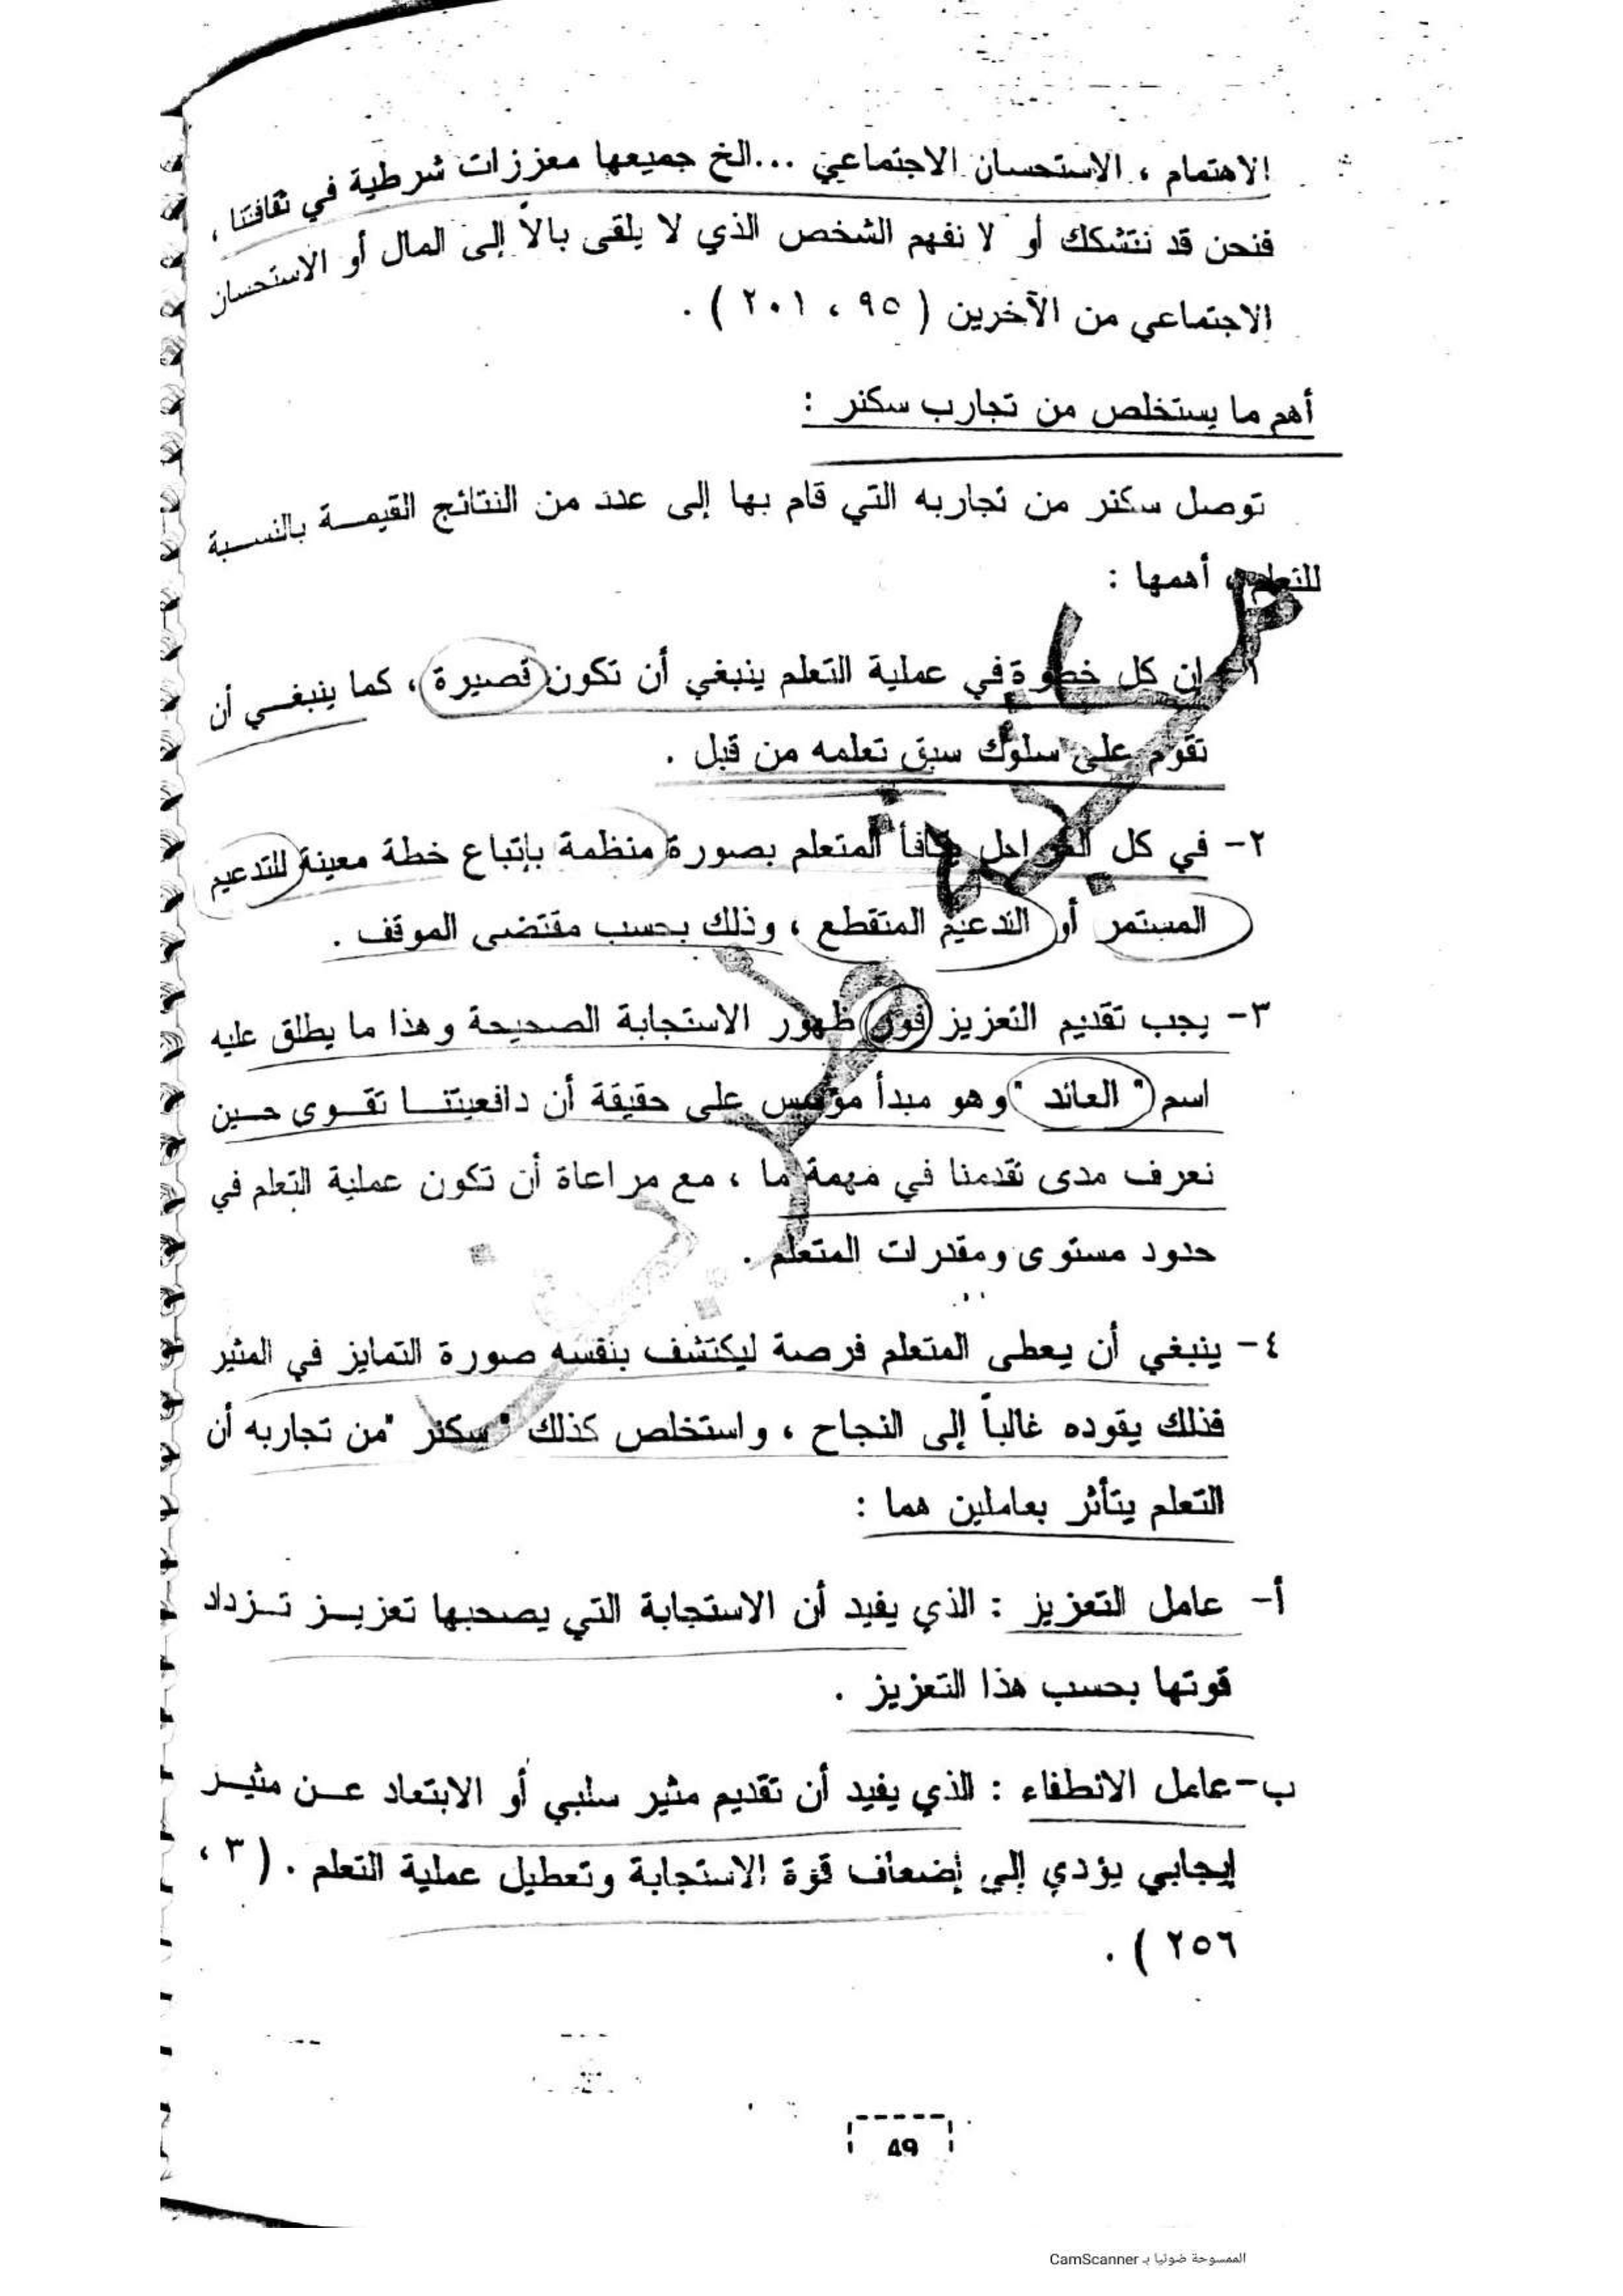 الاهتمام ، الاستحسان الاجتماعي ...الخ جميعها معززات شرطية في ثقافتنا ،
فنحن قد نتشكك أو لا نفهم الشخص الذي لا يلقى بالاً إلى المال أو الاستحسان
الاجتماعي من الآخرين ( ٩٥ ، ٢٠١ ) .
أهم ما يستخلص من تجارب سكنر :
توصل سكنر من تجاربه التي قام بها إلى عدد من النتائج القيمة بالنسبة
للتعلم أهمها :
١- إن كل خطوة في عملية التعلم ينبغي أن تكون قصيرة ، كما ينبغي أن
تقوم على سلوك سبق تعلمه من قبل .
٢- في كل المراحل يكافأ المتعلم بصورة منظمة بإتباع خطة معينة للتدعيم
المستمر أو التدعيم المتقطع ، وذلك بحسب مقتضى الموقف .
٣- يجب تقديم التعزيز فور ظهور الاستجابة الصحيحة وهذا ما يطلق عليه
اسم " العائد " وهو مبدأ مؤسس على حقيقة أن دافعيتنا تقوى حين
نعرف مدى تقدمنا في مهمة ما ، مع مراعاة أن تكون عملية التعلم في
حدود مستوى ومقدرات المتعلم .
٤- ينبغي أن يعطى المتعلم فرصة ليكتشف بنفسه صورة التمايز في المثير
فذلك يقوده غالباً إلى النجاح ، واستخلص كذلك "سكنر "من تجاربه أن
التعلم يتأثر بعاملين هما :
أ- عامل التعزيز : الذي يفيد أن الاستجابة التي يصحبها تعزيز تزداد
قوتها بحسب هذا التعزيز .
ب-عامل الانطفاء : الذي يفيد أن تقديم مثير سلبي أو الابتعاد عن مثير
إيجابي يؤدي إلى إضعاف قوة الاستجابة وتعطيل عملية التعلم . ( ٣ ،
٢٥٦ ) .
49
الممسوحة ضوئيا بـ CamScanner